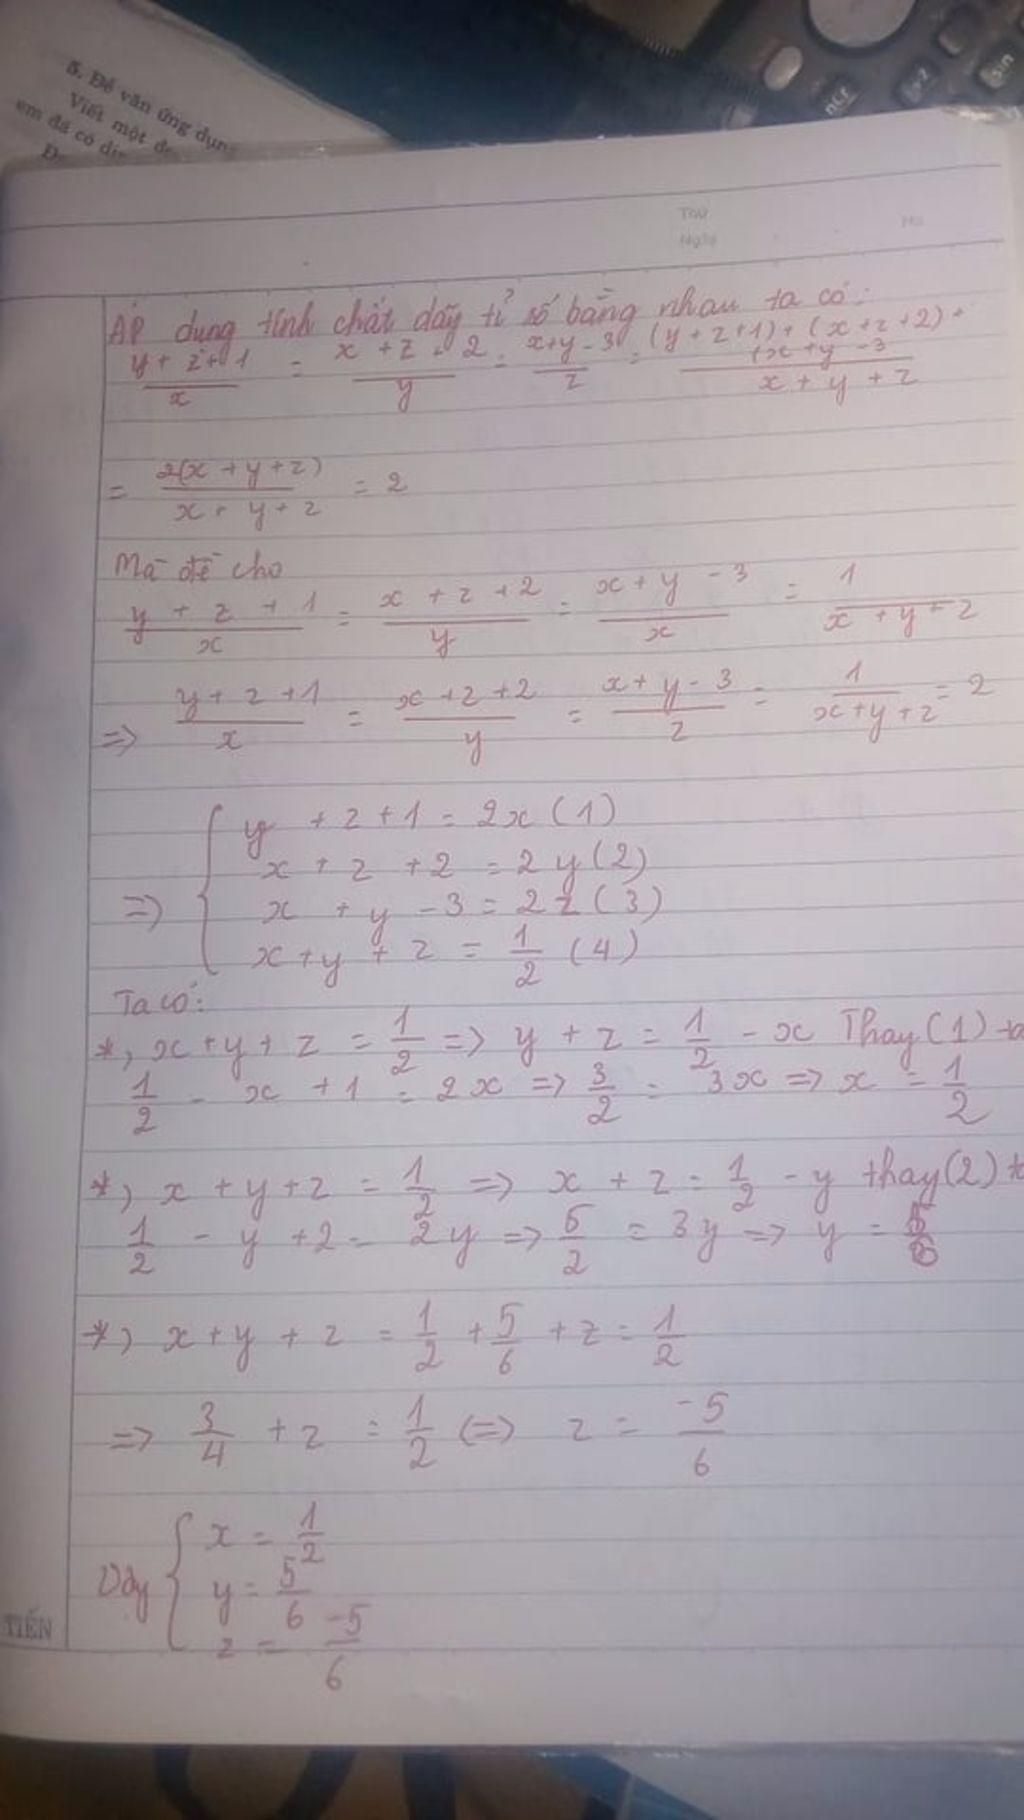 5. Đề văn ứng dụng
Viết một
em đã có
nCr
sin
Thứ
Ngày
No
Áp dụng tính chất dãy tỉ số bằng nhau ta có:
y + z + 1 / x = x + z + 2 / y = x+y - 3 / z = (y + z + 1) + (x + z + 2) + (x + y - 3 / x + y + z
= 2(x + y + z) / x + y + z = 2
Mà đề cho
y + z + 1 / x = x + z + 2 / y = x + y - 3 / x = 1 / x + y + z
=> y + z + 1 / x = x + z + 2 / y = x + y - 3 / z = 1 / x + y + z = 2
y + z + 1 = 2x (1)
x + z + 2 = 2y (2)
=> { x + y - 3 = 2z (3)
x + y + z = 1/2 (4)
Ta có:
*, x + y + z = 1/2 => y + z = 1/2 - x Thay (1) ta
1/2 - x + 1 = 2x => 3/2 = 3x => x = 1/2
*, x + y + z = 1/2 => x + z = 1/2 - y thay (2) ta
1/2 - y + 2 = 2y => 5/2 = 3y => y = 5/6
*, x + y + z = 1/2 + 5/6 + z = 1/2
=> 3/4 + z = 1/2 (=> z = -5/6
x = 1/2
Vậy { y = 5/6
z = -5/6
TIẾN